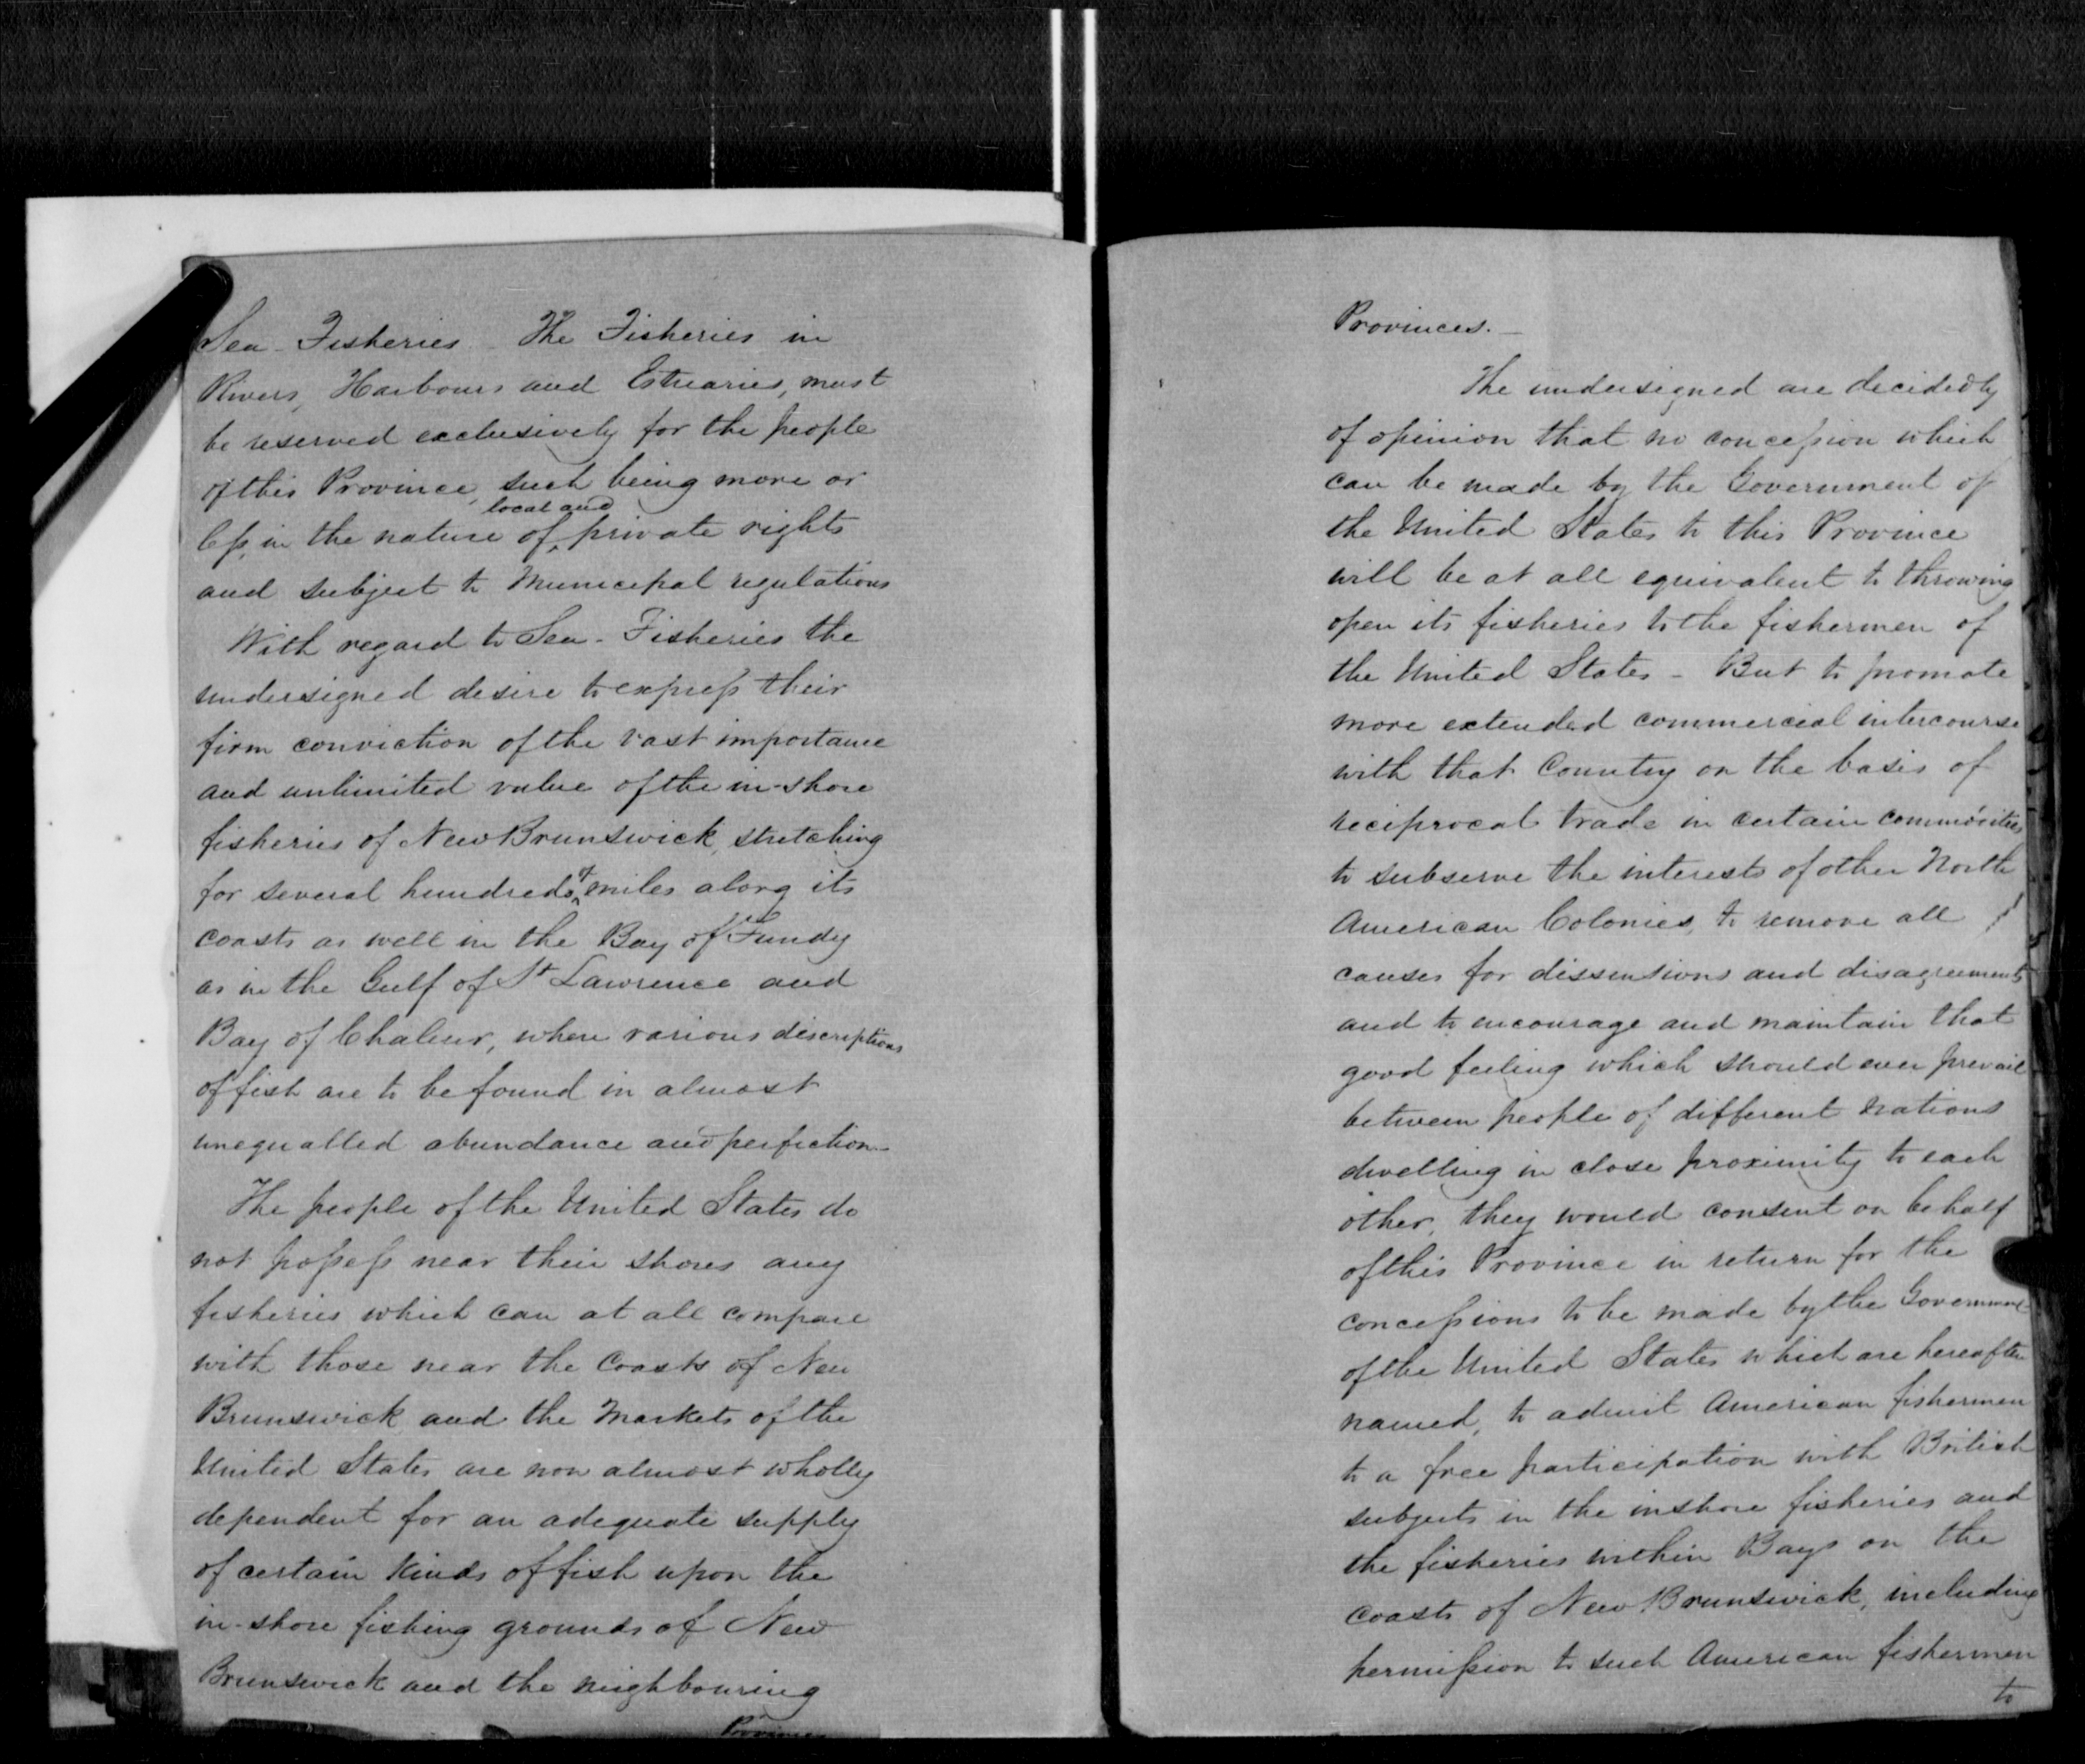 Sea-Fisheries - The Fisheries in
Rivers, Harbours and Estuaries, must
be reserved exclusively for the people
of this Province, such being more or
local and
less, in the nature of ^ private rights
and subject to Municipal regulations
With regard to Sea-Fisheries the
undersigned desire to express their
firm conviction of the vast importance
and unlimited value of the in-shore
fisheries of New Brunswick, stretching
for several hundreds ^of miles along its
coasts as well in the Bay of Fundy
as in the Gulf of St Lawrence and
Bay of Chaleur, where various discriptions
of fish are to be found in almost
unequalled abundance and perfection.
The people of the United States do
not possess near their shores any
fisheries which can at all compare
with those near the Coasts of New
Brunswick and the Markets of the
United States are now almost wholly
dependent for an adequate supply
of certain kinds of fish upon the
in-shore fishing grounds of New
Brunswick and the neighbouring
Provinces
Provinces. -
The undersigned are decidedly
of opinion that no concession which
can be made by the Government of
the United States to this Province
will be at all equivalent to throwing
open its fisheries to the fishermen of
the United States - But to promote
more extended commercial intercourse
with that Country on the basis of
reciprocal trade in certain commodities
to subserve the interests of other North
American Colonies, to remove all
causes for dissensions and disagreements
and to encourage and maintain that
good feeling which should ever prevail
between people of different nations
dwelling in close proximity to each
other, they would consent on behalf
of this Province in return for the
concessions to be made by the Government
of the United States which are hereafter
named, to admit American fishermen
to a free participation with British
subjects in the inshore fisheries and
the fisheries within Bays on the
coasts of New Brunswick, including
permission to such American fishermen
to